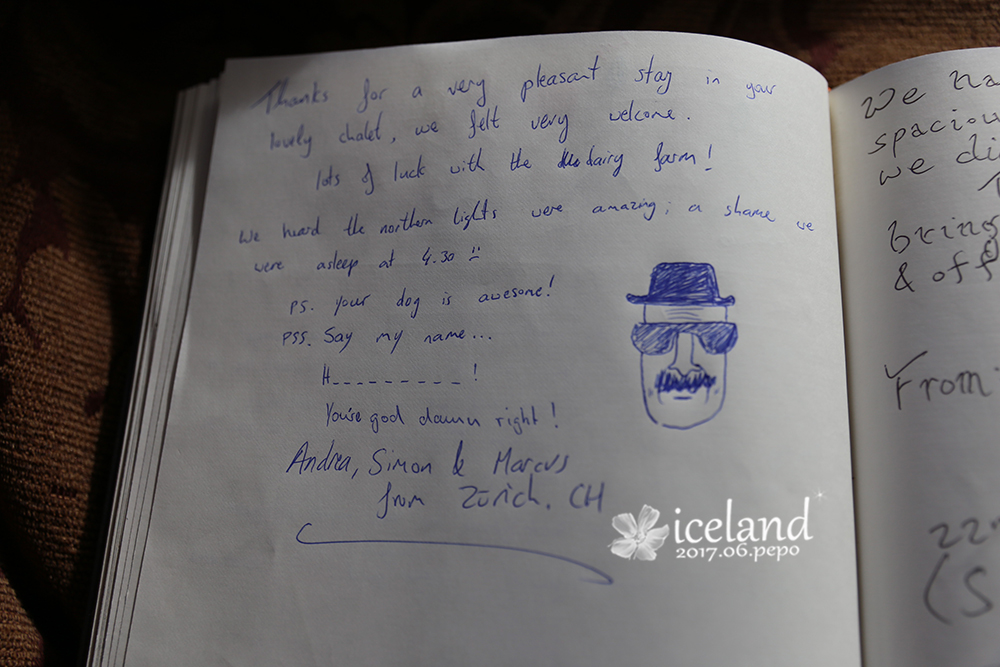 Thanks for a very pleasant stay in your
lovely chalet, we felt very welcome.
lots of luck with the dairy farm!
We heard the northern lights were amazing; a shame we
were asleep at 4.30
ps. your dog is awesome!
pss. Say my name...
H_________!
You're god damn right!
Andrea, Simon & Marcus
from Zürich, CH
We ha
spaciou
we di
T
bring
& off
From:
22n
(S
iceland
2017.06.pepo